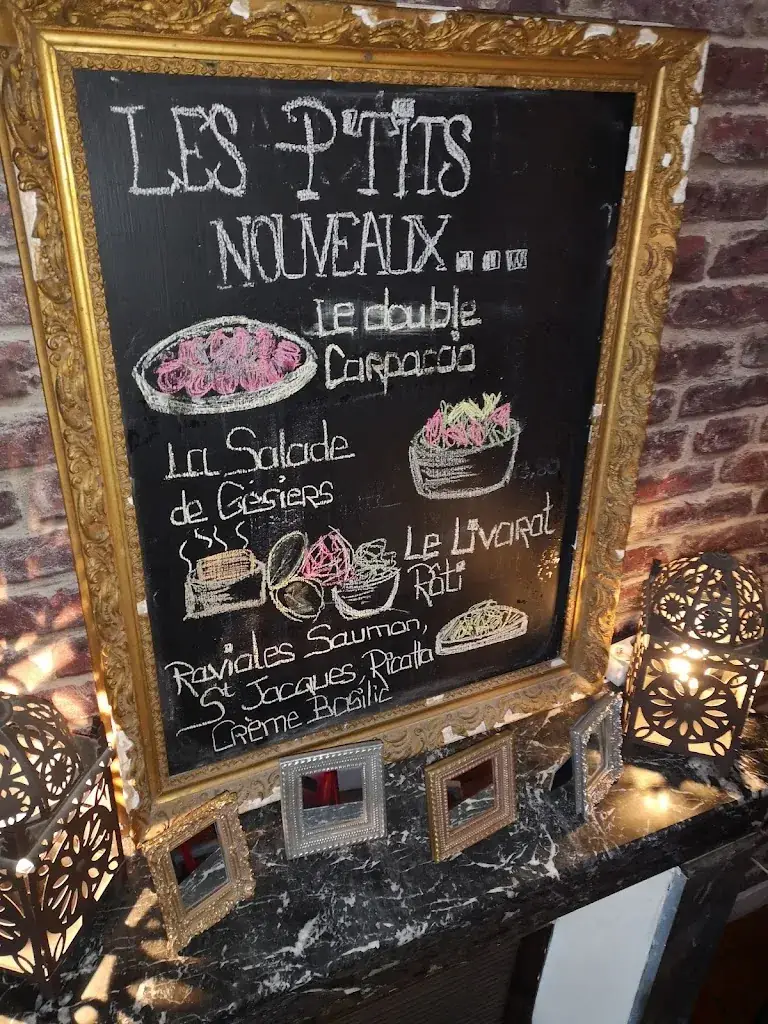 LES P'TITS
NOUVEAUX...
Le double
Carpaccio
La Salade
de Gésiers
Le Livarot
Rôti
Ravioles Saumon,
St Jacques, Ricotta
Crème Basilic